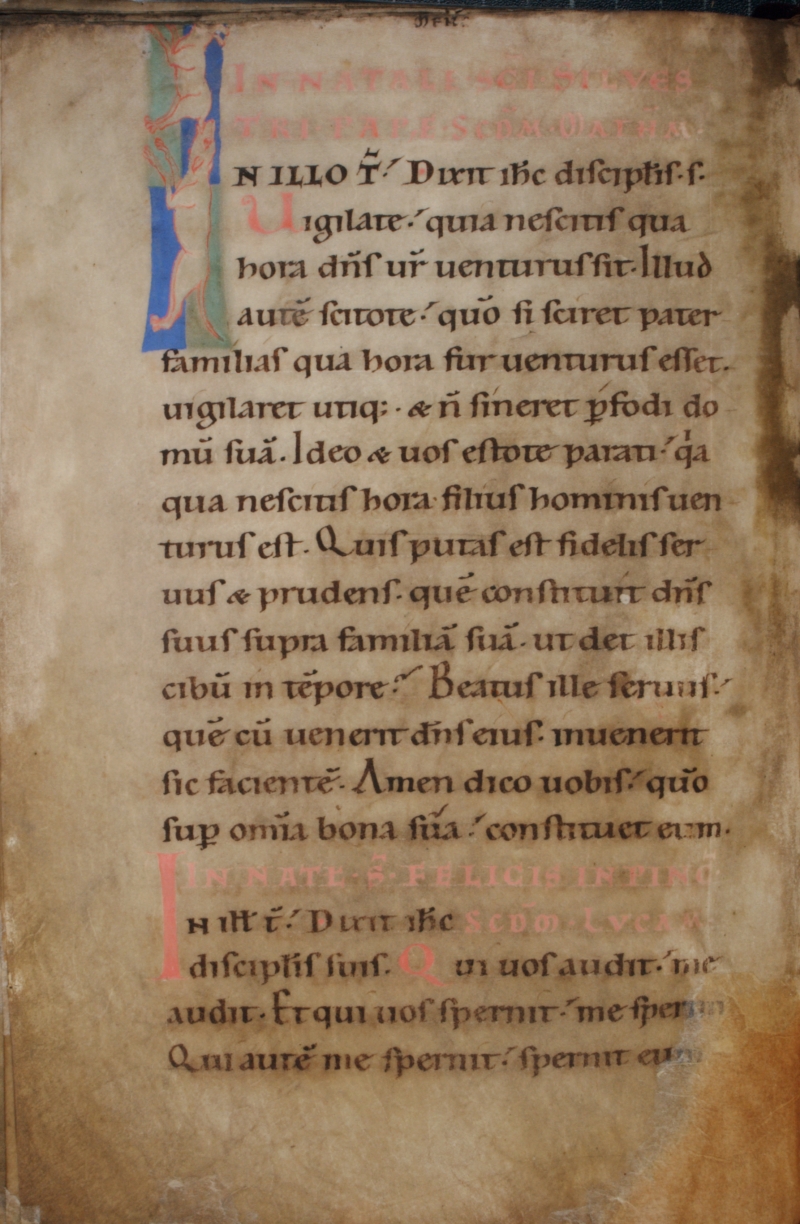 IN NATALI SCĪ SILVES
TRI PAPE. SCDM̄ MATHM̄.
IN ILLO T̄. Dixit ihc̄ discipl̄is. s.
Uigilate. quia nescitis qua
hora dn̄s ur̄ uenturus sit. Illud
autē scitote. quō si sciret pater
familias qua hora fur uenturus esset.
uigilaret utiq:. & n̄ sineret p̄fodi do
mū suā. Ideo & uos estote parati. qͥa
qua nescitis hora filius hominis uen
turus est. Quis putas est fidelis ser
uus & prudens. quē constituit dn̄s
suus supra familiā suā. ut det illis
cibū in tēpore. Beatus ille seruus.
quē cū uenerit dn̄s eius. inuenerit
sic facientē. Amen dico uobis. quō
suꝑ om̄ia bona sua. constituet eum.
IN NATL. S̄. FELICIS IN PINC̄
IN ill̄ t̄. Dixit ihc̄ SCDM̄. LVCAM
discipl̄is suis. Qui uos audit. me
audit. Et qui uos spernit. me sper
Qui autē me spernit. spernit eu